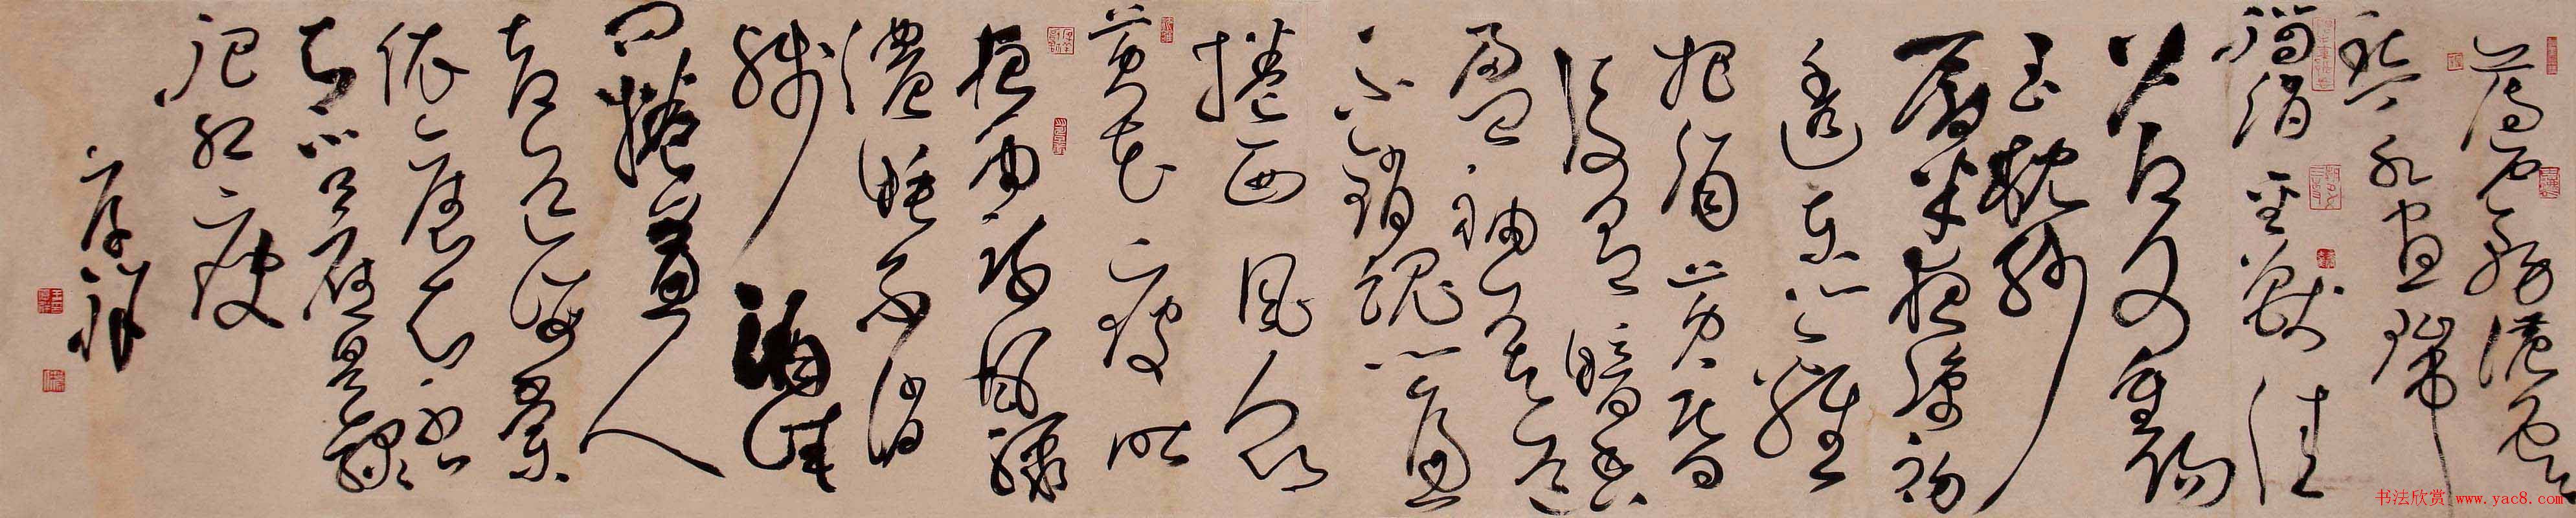 薄霧濃雲
愁永晝瑞
腦銷金獸佳
節又重陽
玉枕紗
廚半夜涼初
透東籬
把酒黃昏
後有暗香
盈袖莫道
不銷魂簾
捲西風人似
黃花瘦昨
夜雨疏風驟
濃睡不消
殘酒試
問捲簾人
卻道海棠
依舊知否
知否應是綠
肥紅瘦
书法欣赏 www.yac8.com